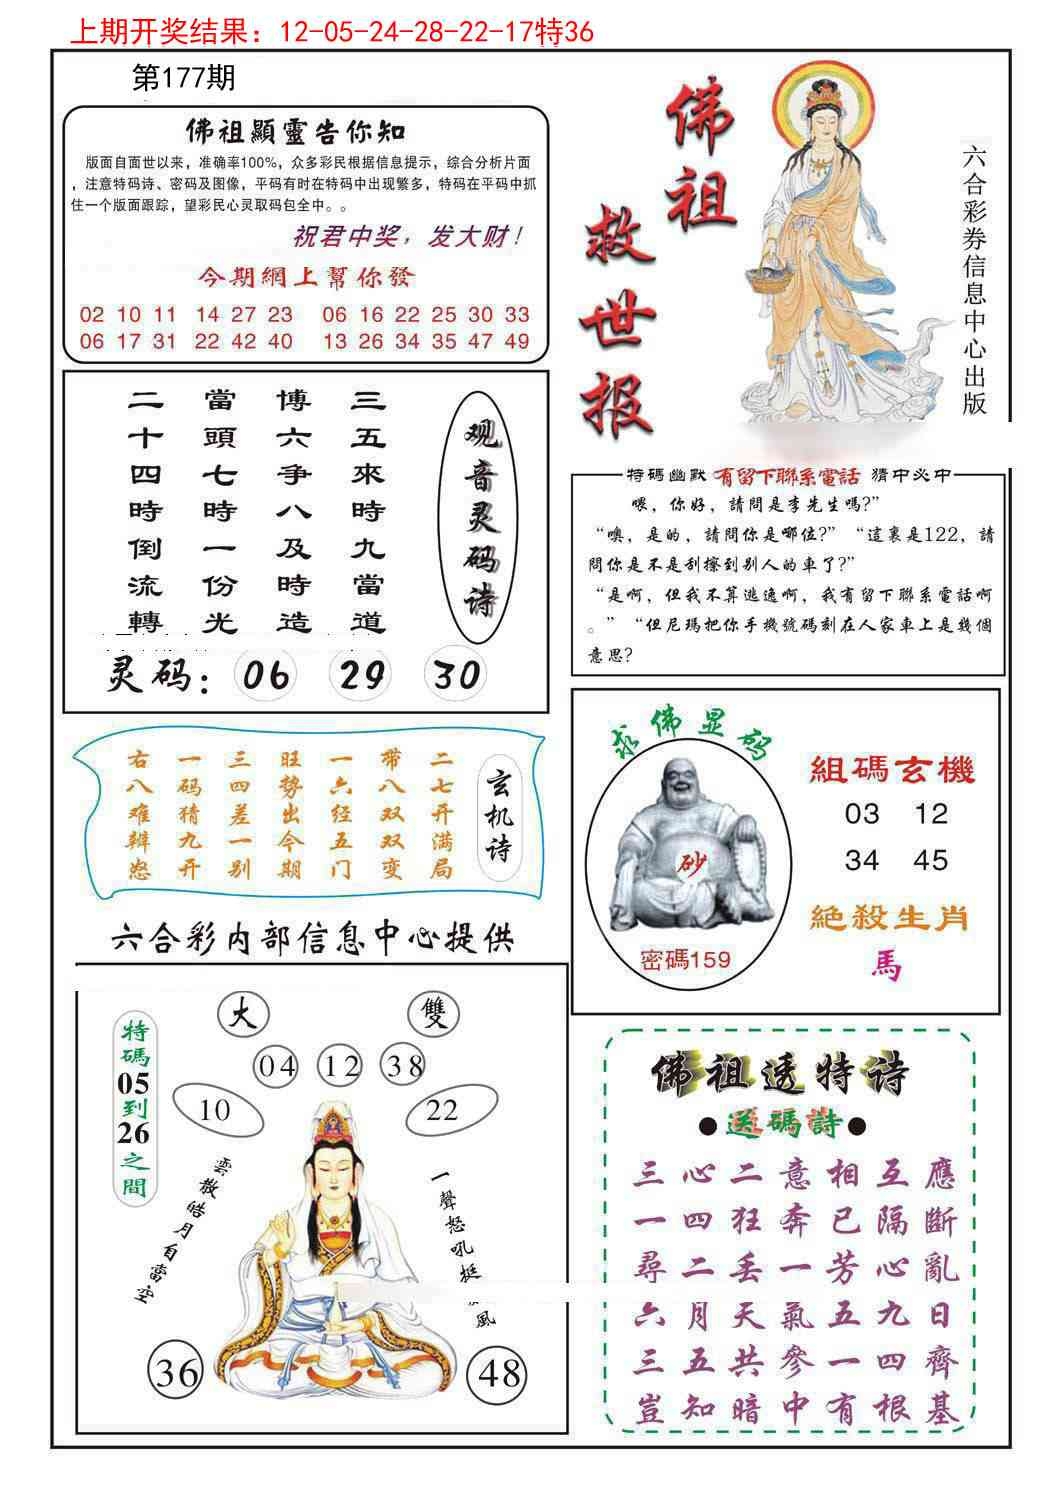 上期开奖结果：12-05-24-28-22-17特36
第177期
佛祖顯靈告你知
版面自面世以来，准确率100%，众多彩民根据信息提示，综合分析片面
，注意特码诗、密码及图像，平码有时在特码中出现繁多，特码在平码中抓
住一个版面跟踪，望彩民心灵取码包全中。。
祝君中奖，发大财！
今期網上幫你發
02 10 11 14 27 23 06 16 22 25 30 33
06 17 31 22 42 40 13 26 34 35 47 49
佛祖
救世报
六合彩券信息中心出版
观音灵码诗
三五來時九當道
博六争八及時造
當頭七時一份光
二十四時倒流轉
灵码：06 29 30
特碼幽默 有留下聯系電話 猜中必中
喂，你好，請問是李先生嗎?”
“噢，是的，請問你是哪位?” “這裏是122，請
問你是不是刮擦到别人的車了?”
“是啊，但我不算逃逸啊，我有留下聯系電話啊
。” “但尼瑪把你手機號碼刻在人家車上是幾個
意思?
玄机诗
二七开满局
带八双双变
一六经五门
旺势出今期
三四差一别
一码猜九开
右八难辩愁
求佛显码
砂
密碼159
組碼玄機
03 12
34 45
絶殺生肖
馬
六合彩内部信息中心提供
大 雙
04 12 38
10 22
特碼05到26之間
雲散皓月自當空
一聲怒吼挺 風
36 48
佛祖透特诗
●送碼詩●
三心二意相互應
一四狂奔已隔斷
尋二丢一芳心亂
六月天氣五九日
三五共參一四齊
豈知暗中有根基